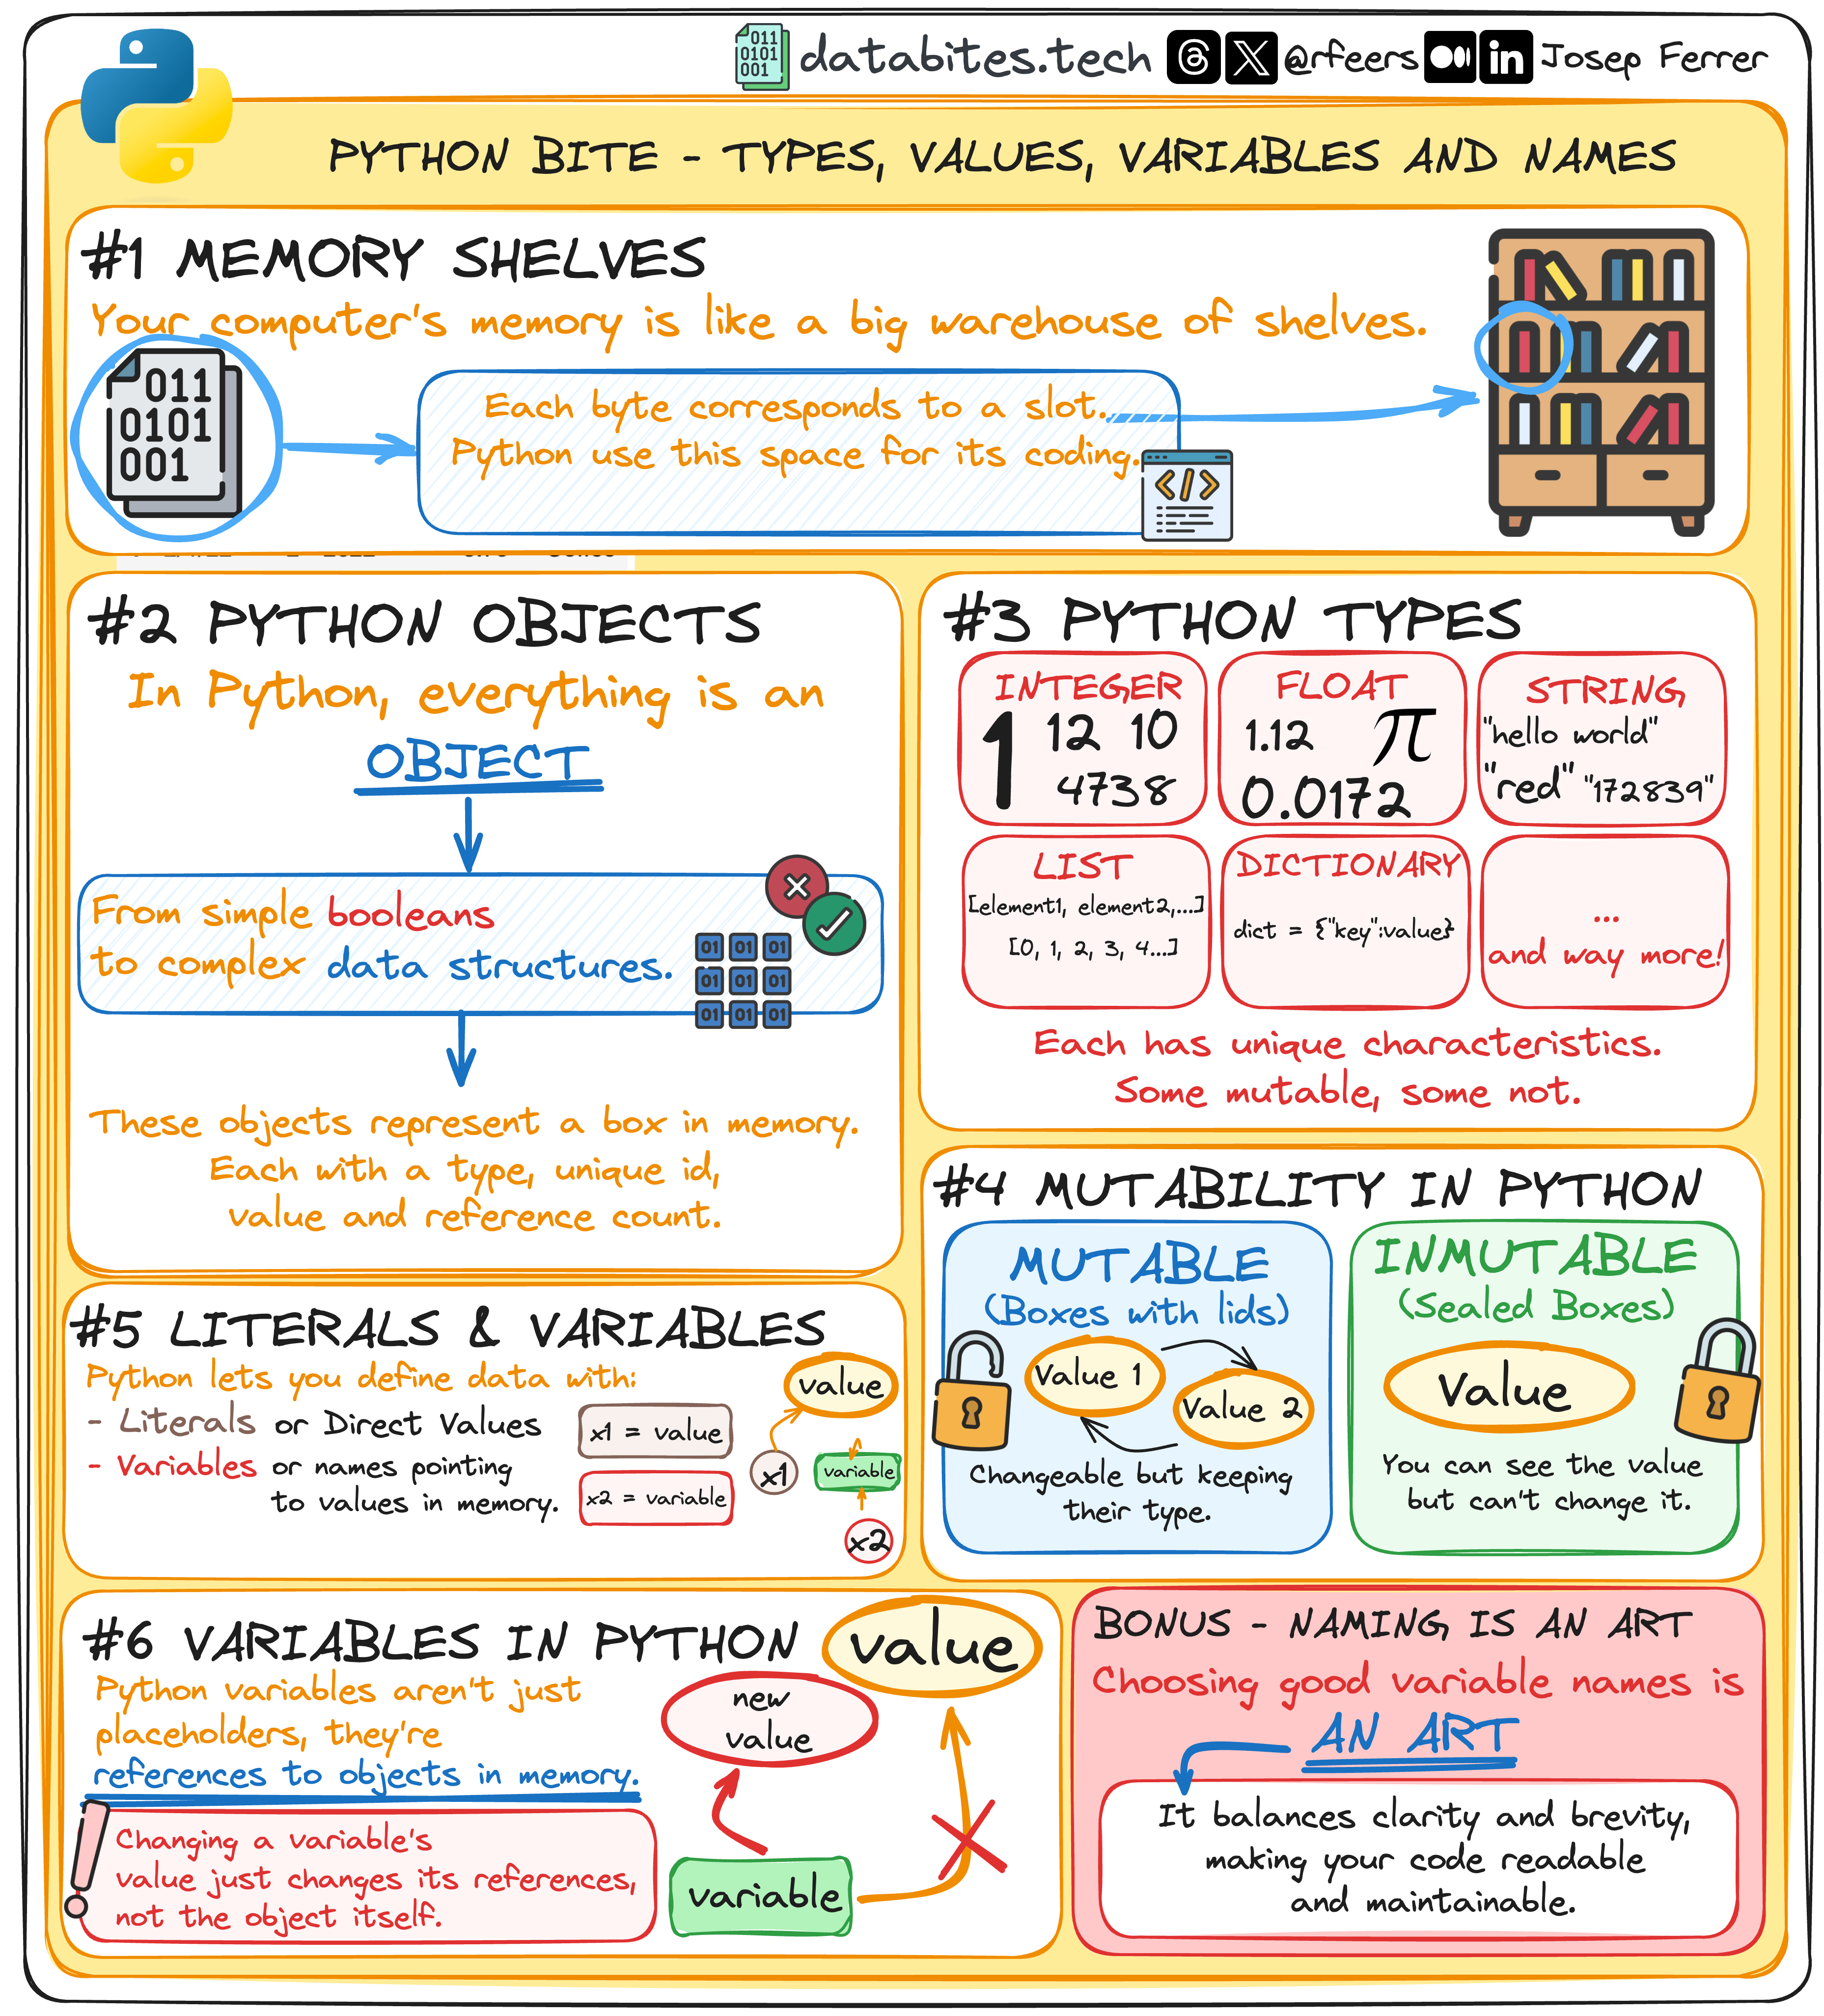 011
0101
001
databites.tech
@rfeers
in
Josep Ferrer
PYTHON BITE - TYPES, VALUES, VARIABLES AND NAMES
#1 MEMORY SHELVES
Your computer's memory is like a big warehouse of shelves.
011
0101
001
Each byte corresponds to a slot.
Python use this space for its coding.
</>
#2 PYTHON OBJECTS
In Python, everything is an
OBJECT
From simple booleans
to complex data structures.
01 01 01
01 01 01
01 01 01
These objects represent a box in memory.
Each with a type, unique id,
value and reference count.
#3 PYTHON TYPES
INTEGER
1 12 10
4738
FLOAT
1.12 π
0.0172
STRING
"hello world"
"red" "172839"
LIST
[element1, element2,...]
[0, 1, 2, 3, 4...]
DICTIONARY
dict = {"key":value}
...
and way more!
Each has unique characteristics.
Some mutable, some not.
#4 MUTABILITY IN PYTHON
MUTABLE
(Boxes with lids)
Value 1
Value 2
Changeable but keeping
their type.
INMUTABLE
(Sealed Boxes)
Value
You can see the value
but can't change it.
#5 LITERALS & VARIABLES
Python lets you define data with:
- Literals or Direct Values
- Variables or names pointing
to values in memory.
x1 = value
x2 = variable
value
x1
variable
x2
#6 VARIABLES IN PYTHON
Python variables aren't just
placeholders, they're
references to objects in memory.
Changing a variable's
value just changes its references,
not the object itself.
value
new
value
variable
BONUS - NAMING IS AN ART
Choosing good variable names is
AN ART
It balances clarity and brevity,
making your code readable
and maintainable.